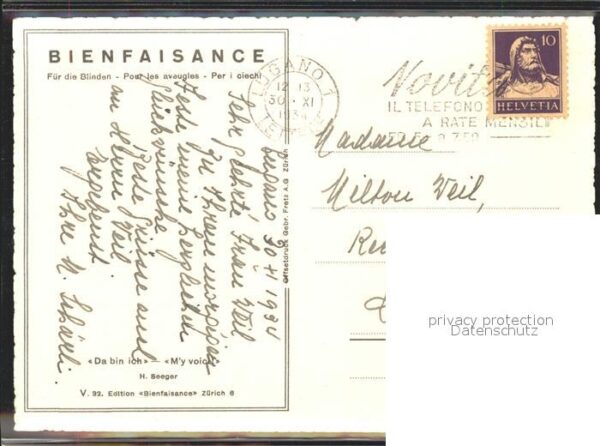 BIENFAISANCE
Für die Blinden - Pour les aveugles - Per i ciechi
Lugano 30 XI 1931
Sehr geehrte Frau Weil
Zu Ihrem morgigen
Feste meine herzlichen
Glückwünsche.
Beste Grüsse auch
an Herrn Weil
ergebenst
Ihre M.
«Da bin ich» - «M'y voici»
H. Seeger
V. 92. Edition «Bienfaisance» Zürich 6
Offsetdruck Gebr. Fretz A.G. Zürich
LUGANO 1
12 13
30. XI
193
LETTERE
Novità
IL TELEFONO
A RATE MENSILI
10
HELVETIA
Madame
Milton Weil,
privacy protection
Datenschutz